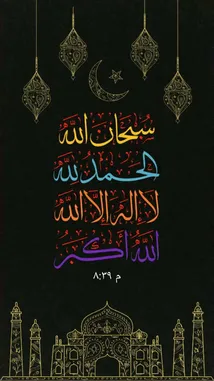 سُبْحَانَ اللّٰه
الحَمْدُ لِلّٰه
لَا إِلٰهَ إِلَّا اللّٰه
اللّٰهُ أَكْبَرُ
٨:٣٩ م